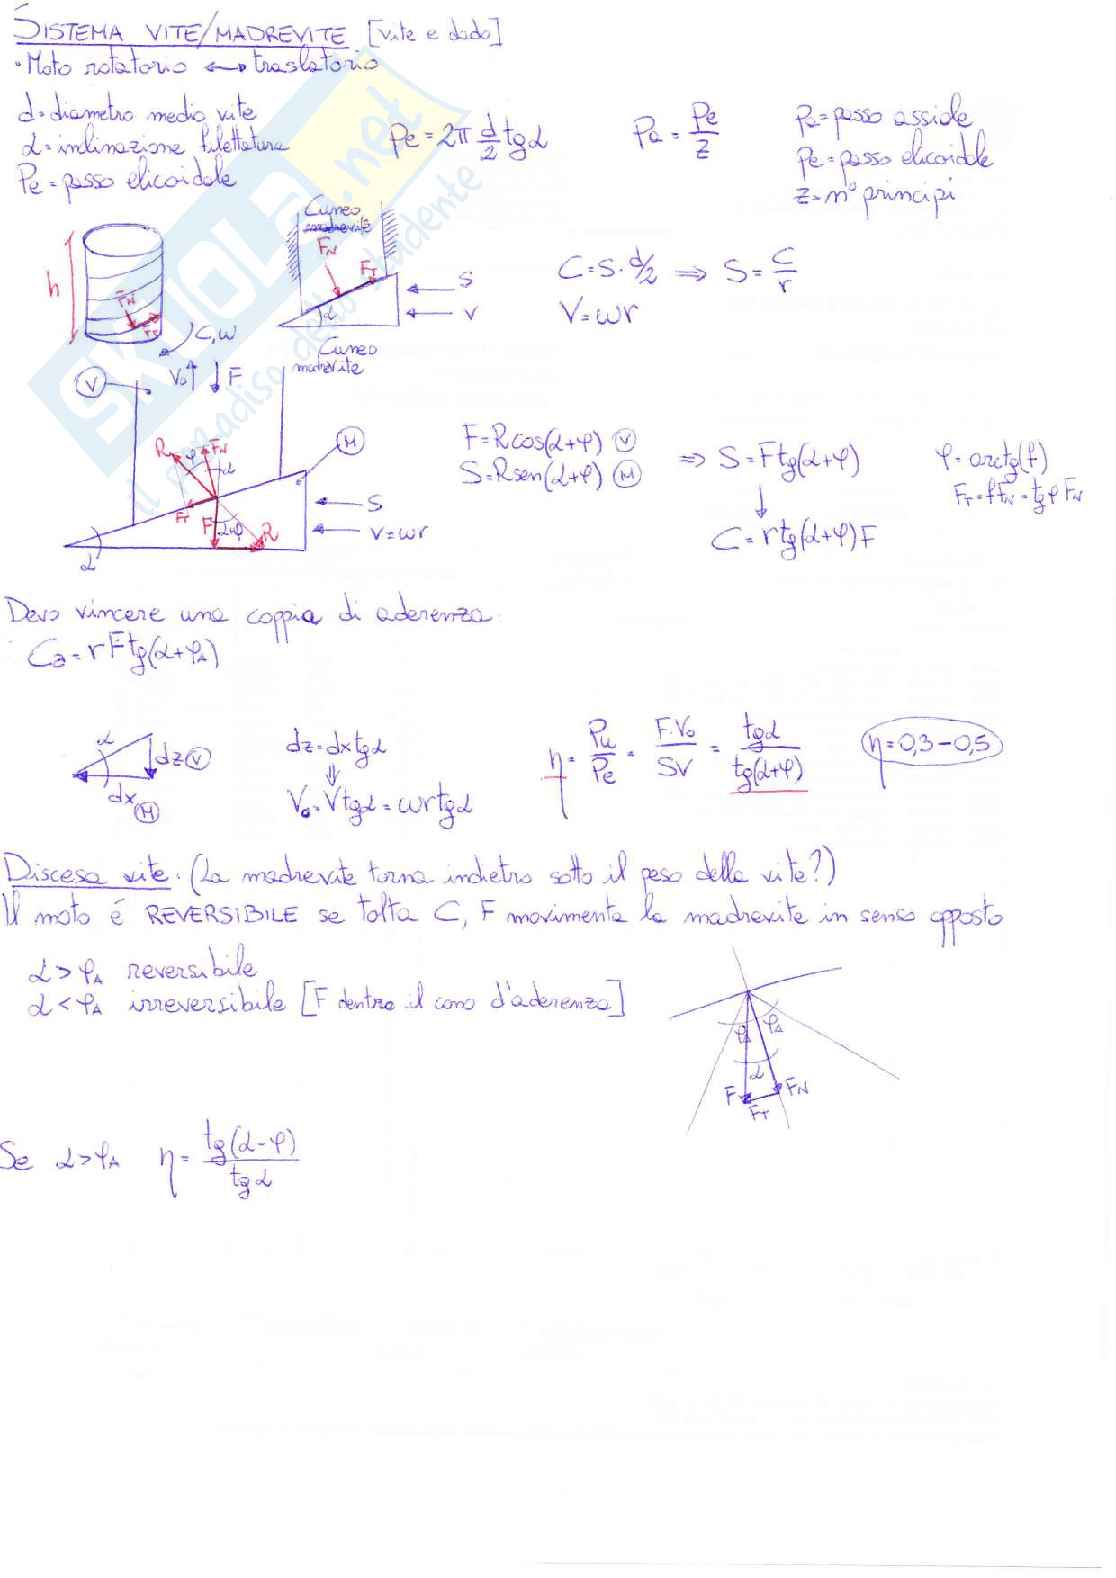 SISTEMA VITE/MADREVITE [vite e dado]
• Moto rotatorio ↔ traslatorio
d = diametro medio vite
α = inclinazione filettatura
Pe = passo elicoidale
Pe = 2π d/2 tgα
Pa = Pe/z
Pa = passo assiale
Pe = passo elicoidale
z = n° principi
h
FN
FT
C, ω
Cuneo
madrevite
FN
FT
α
S
V
Cuneo
madrevite
C = S · d/2 ⇒ S = C/r
V = ωr
V
Vo ↑ ↓ F
M
R
φ
FN
α
FT
F
α+φ
R
S
V = ωr
α
F = R cos(α+φ) (V)
S = R sen(α+φ) (M)
⇒ S = F tg(α+φ)
↓
C = r tg(α+φ) F
φ = arctg(f)
FT = f FN = tgφ FN
Devo vincere una coppia di aderenza:
Ca = r F tg(α+φA)
α
dz (V)
dx (M)
dz = dx tgα
⇓
Vo = V tgα = ωr tgα
η = Pu/Pe = F·Vo/SV = tgα/tg(α+φ)
η = 0,3 – 0,5
Discesa vite. (La madrevite torna indietro sotto il peso della vite?)
Il moto é REVERSIBILE se tolta C, F movimenta la madrevite in senso opposto
α > φA reversibile
α < φA irreversibile [F dentro il cono d'aderenza]
φA
φA
α
F
FN
FT
Se α > φA η = tg(α-φ)/tgα
SKUOLA.net
il paradiso dello studente